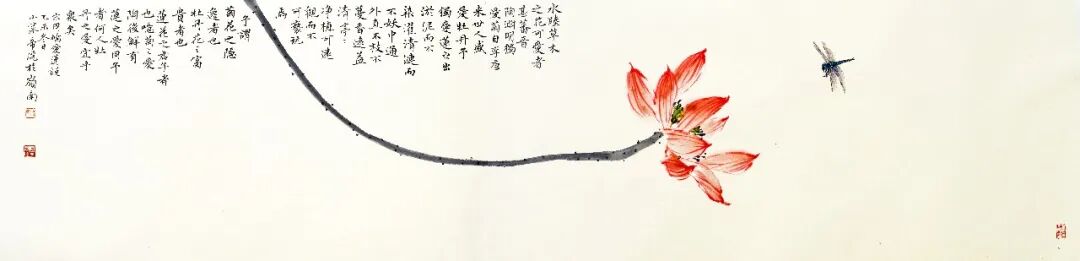 水陸草木
之花可愛者
甚蕃晉
陶淵明獨
愛菊自李唐
來世人盛
愛牡丹予
獨愛蓮之出
淤泥而不
染濯清漣而
不妖中通
外直不枝不
蔓香遠益
清亭々
淨植可遠
觀而不
可褻玩
焉
予謂
菊花之隱
逸者也
牡丹花之富
貴者也
蓮花之君子者
也噫菊之愛
陶後鮮有
蓮之愛同予
者何人牡
丹之愛宜乎
衆矣
愛蓮說
冬日
於嶺南